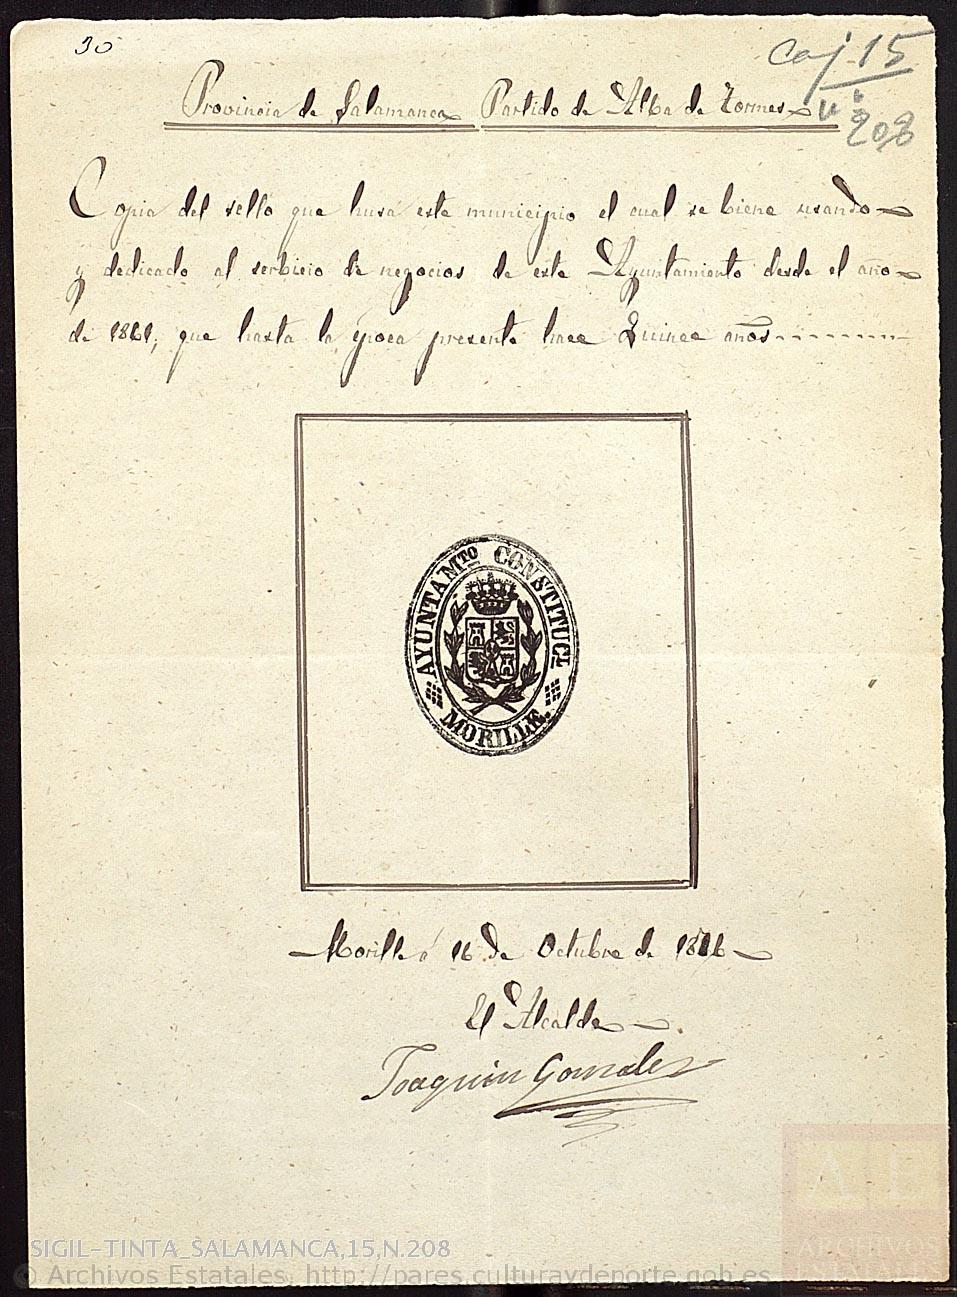 30
Caj 15
Nº 208
Provincia de Salamanca Partido de Alba de Tormes
Copia del sello que husa este municipio el cual se biene usando
y dedicado al serbicio de negocios de este Ayuntamiento desde el año
de 1861, que hasta la época presente hace Quince años
AYUNTAMTO CONSTITUCL
MORILLE.
Morille á 16 de Octubre de 1876
El Alcalde
Joaquin Gonzalez
SIGIL-TINTA_SALAMANCA,15,N.208
© Archivos Estatales, http://pares.culturaydeporte.gob.es
AE
ARCHIVOS
ESTATALES